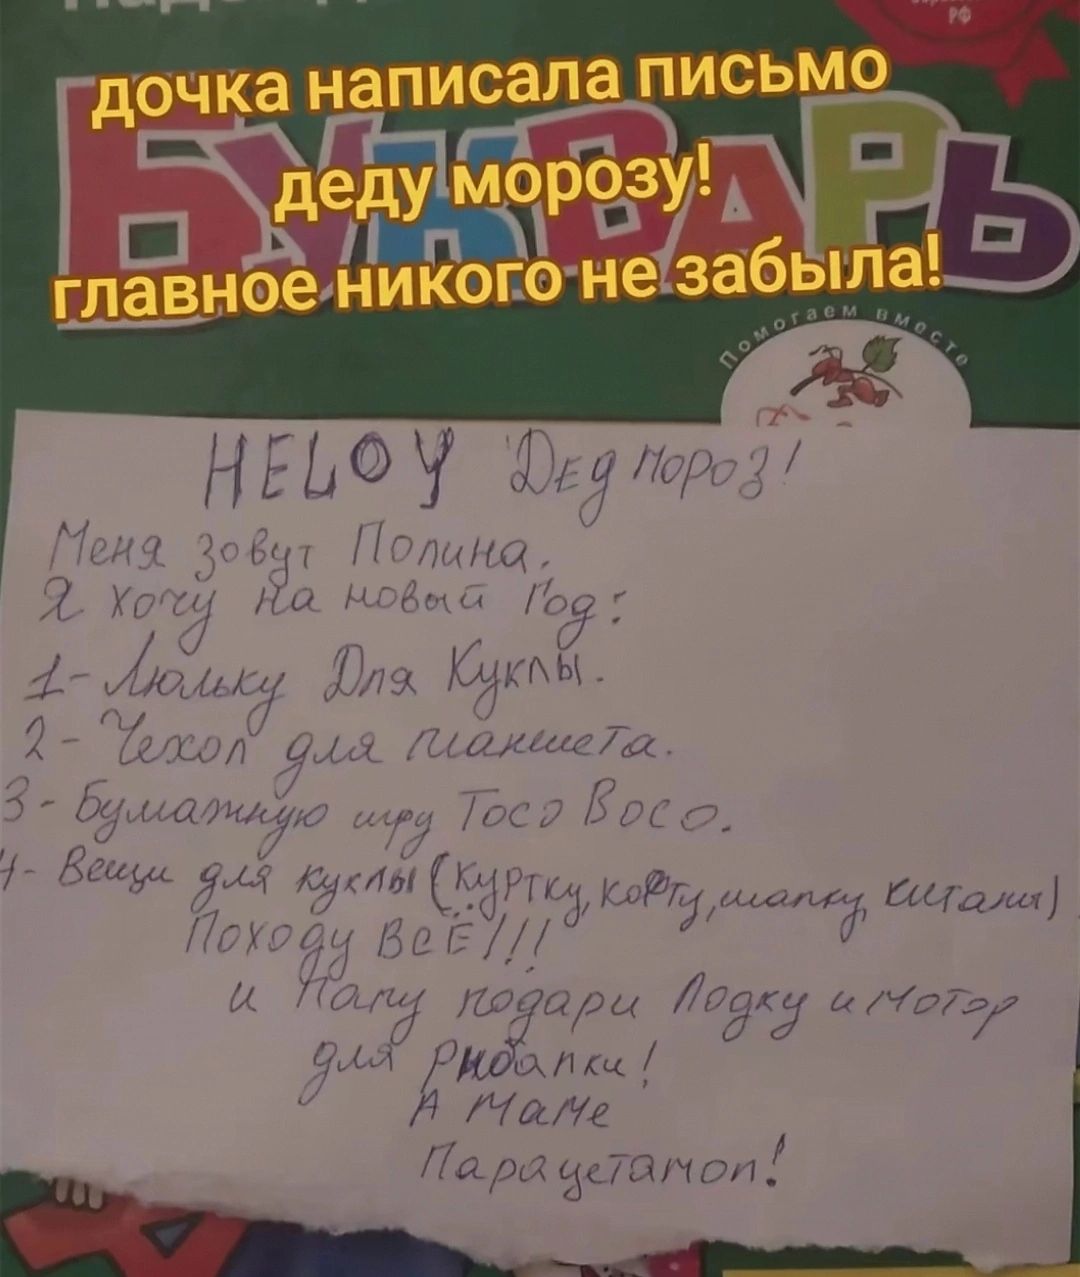 РФ
БУКВАРЬ
дочка написала письмо
деду морозу!
главное никого не забыла!
Помогаем вместе
HELOY Дед мороз!
Меня зовут Полина.
Я хочу на новый Год:
1- Люльку Для Куклы.
2- Чехол для планшета.
3- Бумажную игру Тосо Восо.
4- Вещи для куклы (куртку, кофту, шапку, китаны)
Походу ВСЁ!!!
и Папу подари Лодку и мотор
для рыбалки!
А маме
Парацетамол!